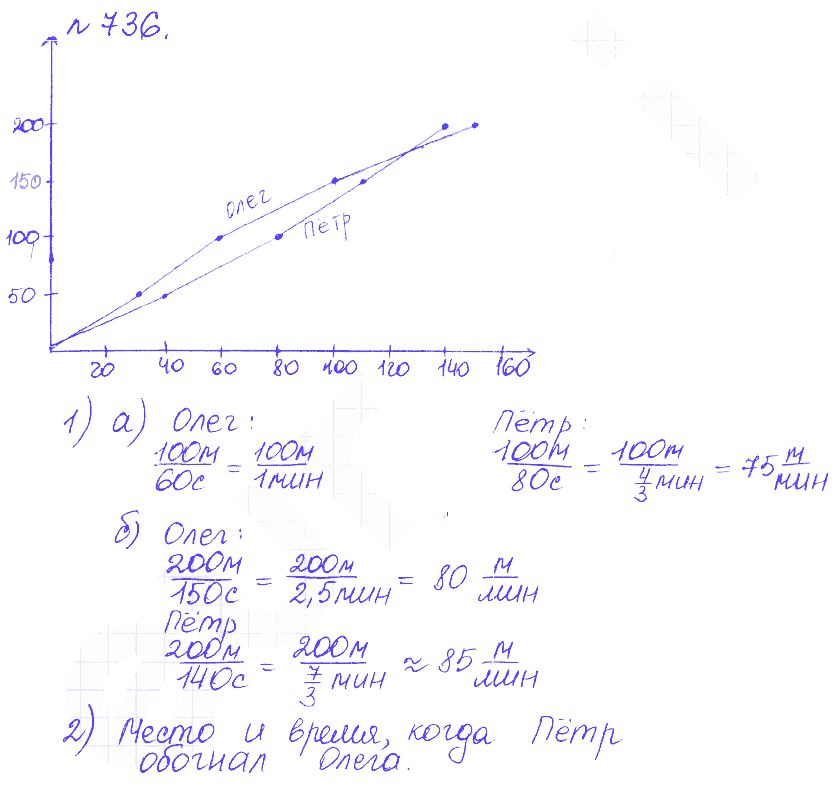 № 736.
200
150
100
50
Олег
Пётр
20 40 60 80 100 120 140 160
1) а) Олег:
100м/60с = 100м/1мин
Пётр:
100м/80с = 100м/(4/3 мин) = 75 м/мин
б) Олег:
200м/150с = 200м/2,5мин = 80 м/мин
Пётр
200м/140с = 200м/(7/3 мин) ≈ 85 м/мин
2) Место и время, когда Пётр
обогнал Олега.